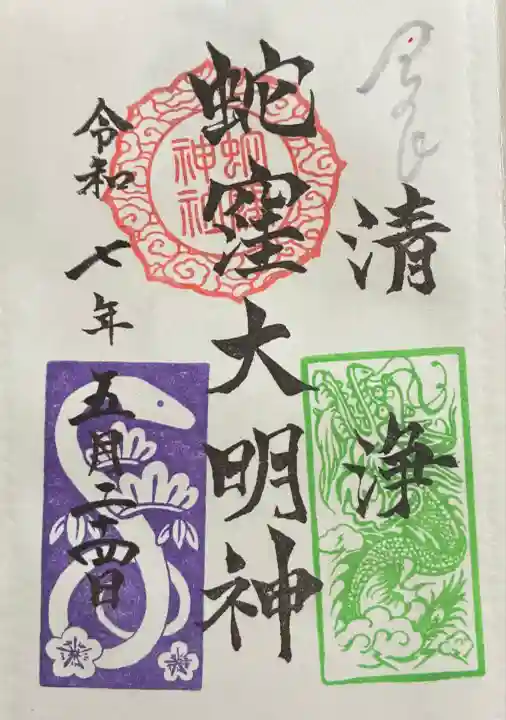 清浄
蛇窪大明神
蛇窪神社
令和七年五月二十四日